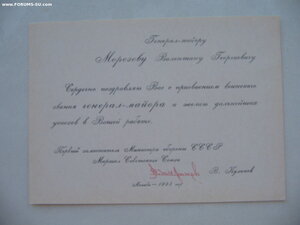 www.FORUMS-SU.com
Генерал-майору
Морозову Валентину Георгиевичу
Сердечно поздравляю Вас с присвоением воинского
звания генерал-майора и желаю дальнейших
успехов в Вашей работе.
Первый заместитель Министра обороны СССР
Маршал Советского Союза
В. Куликов
Москва